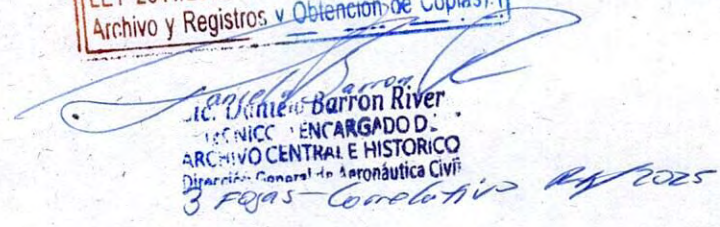 Archivo y Registros y Obtención de Copias).
Lic. Daniel Barron River
TECNICO ENCARGADO D
ARCHIVO CENTRAL E HISTORICO
Dirección General de Aeronáutica Civil
3 Fojas - Correlativo /2025